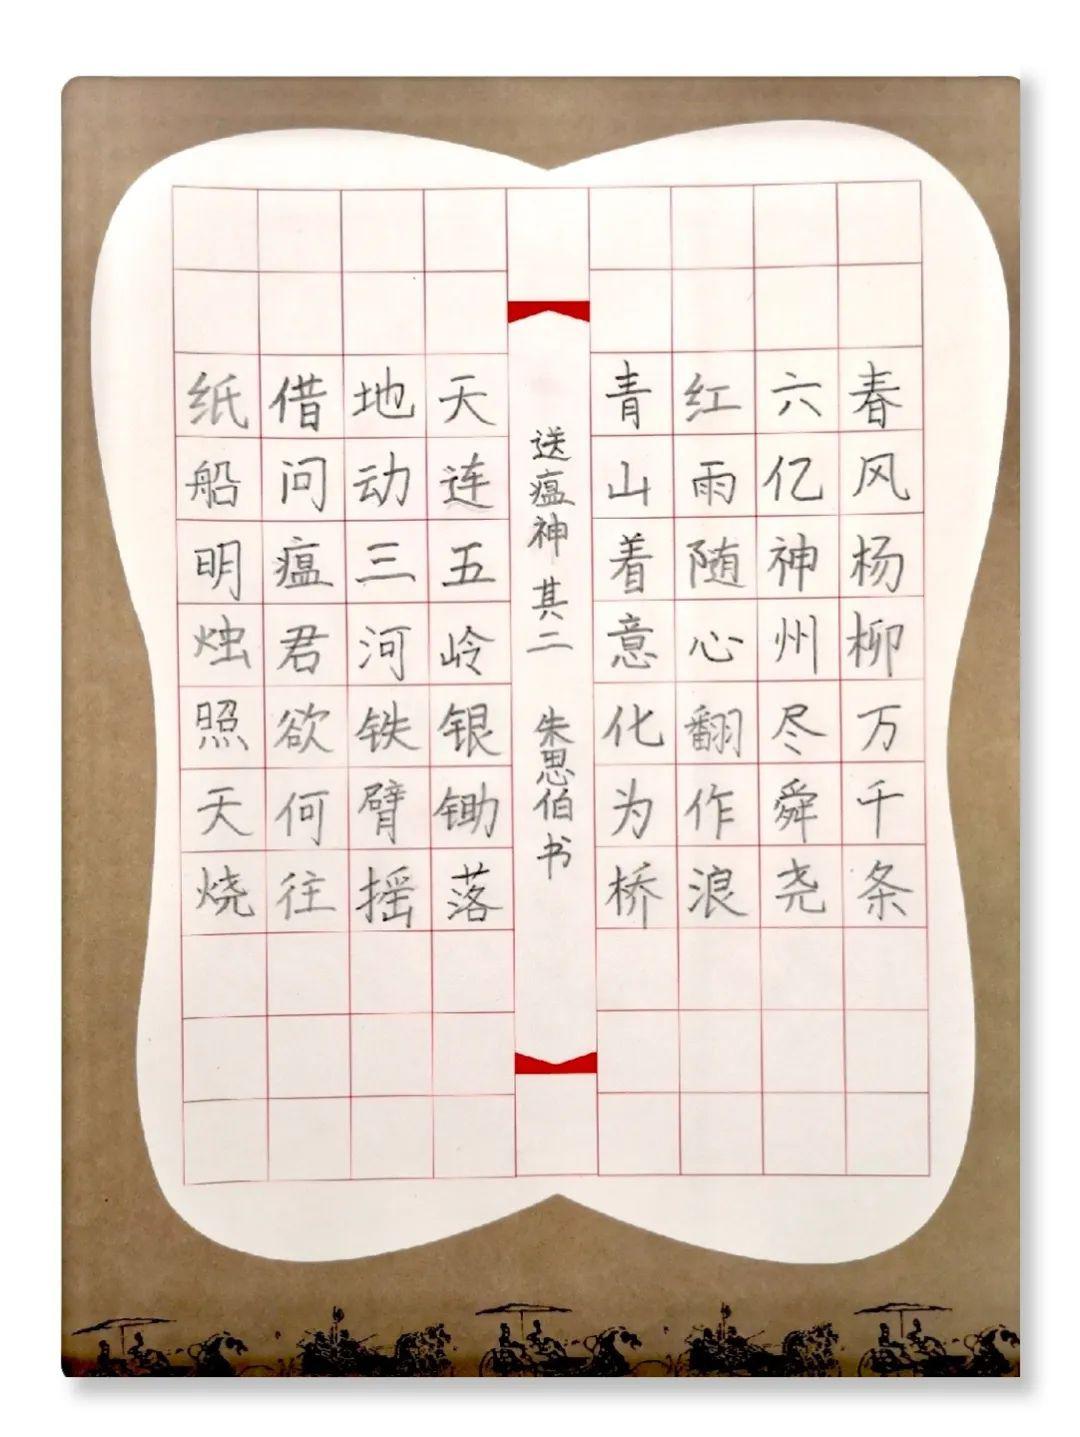 春风杨柳万千条
六亿神州尽舜尧
红雨随心翻作浪
青山着意化为桥
送瘟神 其二 朱思伯书
天连五岭银锄落
地动三河铁臂摇
借问瘟君欲何往
纸船明烛照天烧